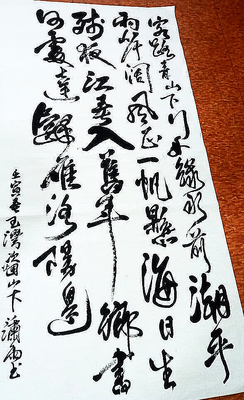 客路青山下行舟綠水前潮平
兩岸闊風正一帆懸海日生
殘夜江春入舊年鄉書
何處達歸雁洛陽邊
壬寅春王灣次北固山下書